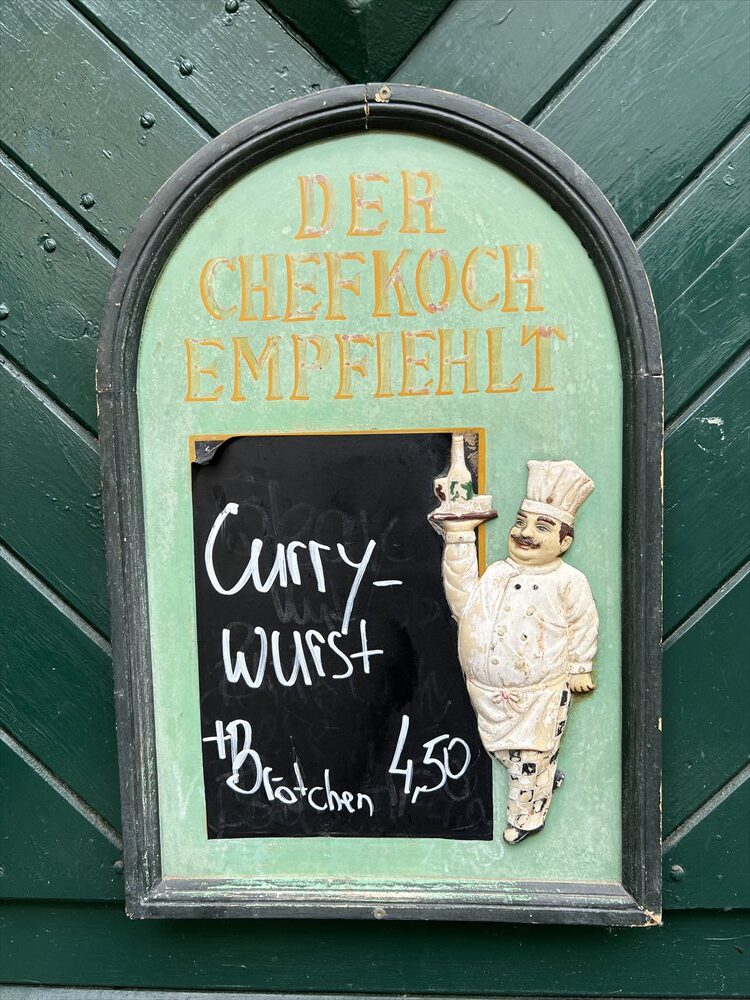 DER
CHEFKOCH
EMPFIEHLT
Curry-
wurst
+Brötchen 4,50